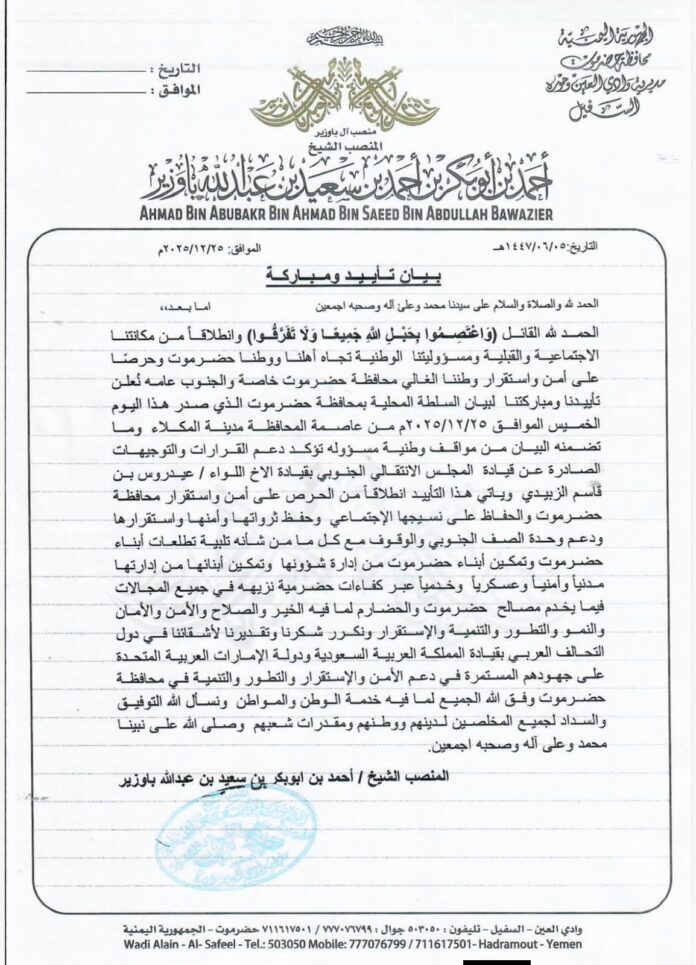 بسم الله الرحمن الرحيم
الجمهورية اليمنية
محافظة حضرموت
مديرية وادي العين وحوره
السفيل
التاريخ :
الموافق :
منصب آل باوزير
المنصب الشيخ
أحمد بن أبوبكر بن أحمد بن سعيد بن عبدالله باوزير
AHMAD BIN ABUBAKR BIN AHMAD BIN SAEED BIN ABDULLAH BAWAZIER
التاريخ:١٤٤٧/٠٦/٠٥هـ الموافق: ٢٠٢٥/١٢/٢٥م
بيان تأييد ومباركة
الحمد لله والصلاة والسلام على سيدنا محمد وعلى آله وصحبه اجمعين اما بعد،،
الحمد لله القائل (وَاعْتَصِمُوا بِحَبْلِ اللَّهِ جَمِيعًا وَلَا تَفَرَّقُوا) وانطلاقاً من مكانتنا
الاجتماعية والقبلية ومسؤوليتنا الوطنية تجاه أهلنا ووطنا حضرموت وحرصاً
على أمن واستقرار وطننا الغالي محافظة حضرموت خاصة والجنوب عامه نُعلن
تأييدنا ومباركتنا لبيان السلطة المحلية بمحافظة حضرموت الذي صدر هذا اليوم
الخميس الموافق ٢٠٢٥/١٢/٢٥م من عاصمة المحافظة مدينة المكلاء وما
تضمنه البيان من مواقف وطنية مسؤوله تؤكد دعم القرارات والتوجيهات
الصادرة عن قيادة المجلس الانتقالي الجنوبي بقيادة الاخ اللواء / عيدروس بن
قاسم الزبيدي وياتي هذا التأييد انطلاقاً من الحرص على أمن واستقرار محافظة
حضرموت والحفاظ على نسيجها الإجتماعي وحفظ ثرواتها وأمنها واستقرارها
ودعم وحدة الصف الجنوبي والوقوف مع كل ما من شأنه تلبية تطلعات أبناء
حضرموت وتمكين أبناء حضرموت من إدارة شؤونها وتمكين أبنائها من إدارتها
مدنياً وأمنياً وعسكرياً وخدمياً عبر كفاءات حضرمية نزيهه في جميع المجالات
فيما يخدم مصالح حضرموت والحضارم لما فيه الخير والصلاح والأمن والأمان
والنمو والتطور والتنمية والإستقرار ونكرر شكرنا وتقديرنا لأشقائنا في دول
التحالف العربي بقيادة المملكة العربية السعودية ودولة الإمارات العربية المتحدة
على جهودهم المستمرة في دعم الأمن والإستقرار والتطور والتنمية في محافظة
حضرموت وفق الله الجميع لما فيه خدمة الوطن والمواطن ونسأل الله التوفيق
والسداد لجميع المخلصين لدينهم ووطنهم ومقدرات شعبهم وصلى الله على نبينا
محمد وعلى آله وصحبه اجمعين.
المنصب الشيخ / أحمد بن ابوبكر بن سعيد بن عبدالله باوزير
وادي العين - السفيل - تليفون : ٥٠٣٠٥٠ جوال : ٧٧٧٠٧٦٧٩٩ / ٧١١٦١٧٥٠١ حضرموت - الجمهورية اليمنية
Wadi Alain - Al- Safeel - Tel.: 503050 Mobile: 777076799 / 711617501- Hadramout - Yemen